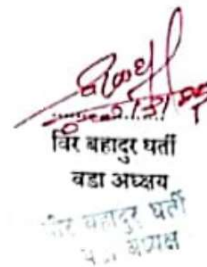 विर बहादुर घर्ती
वडा अध्यक्षय
वीर बहादुर घर्ती
वडा अध्यक्ष